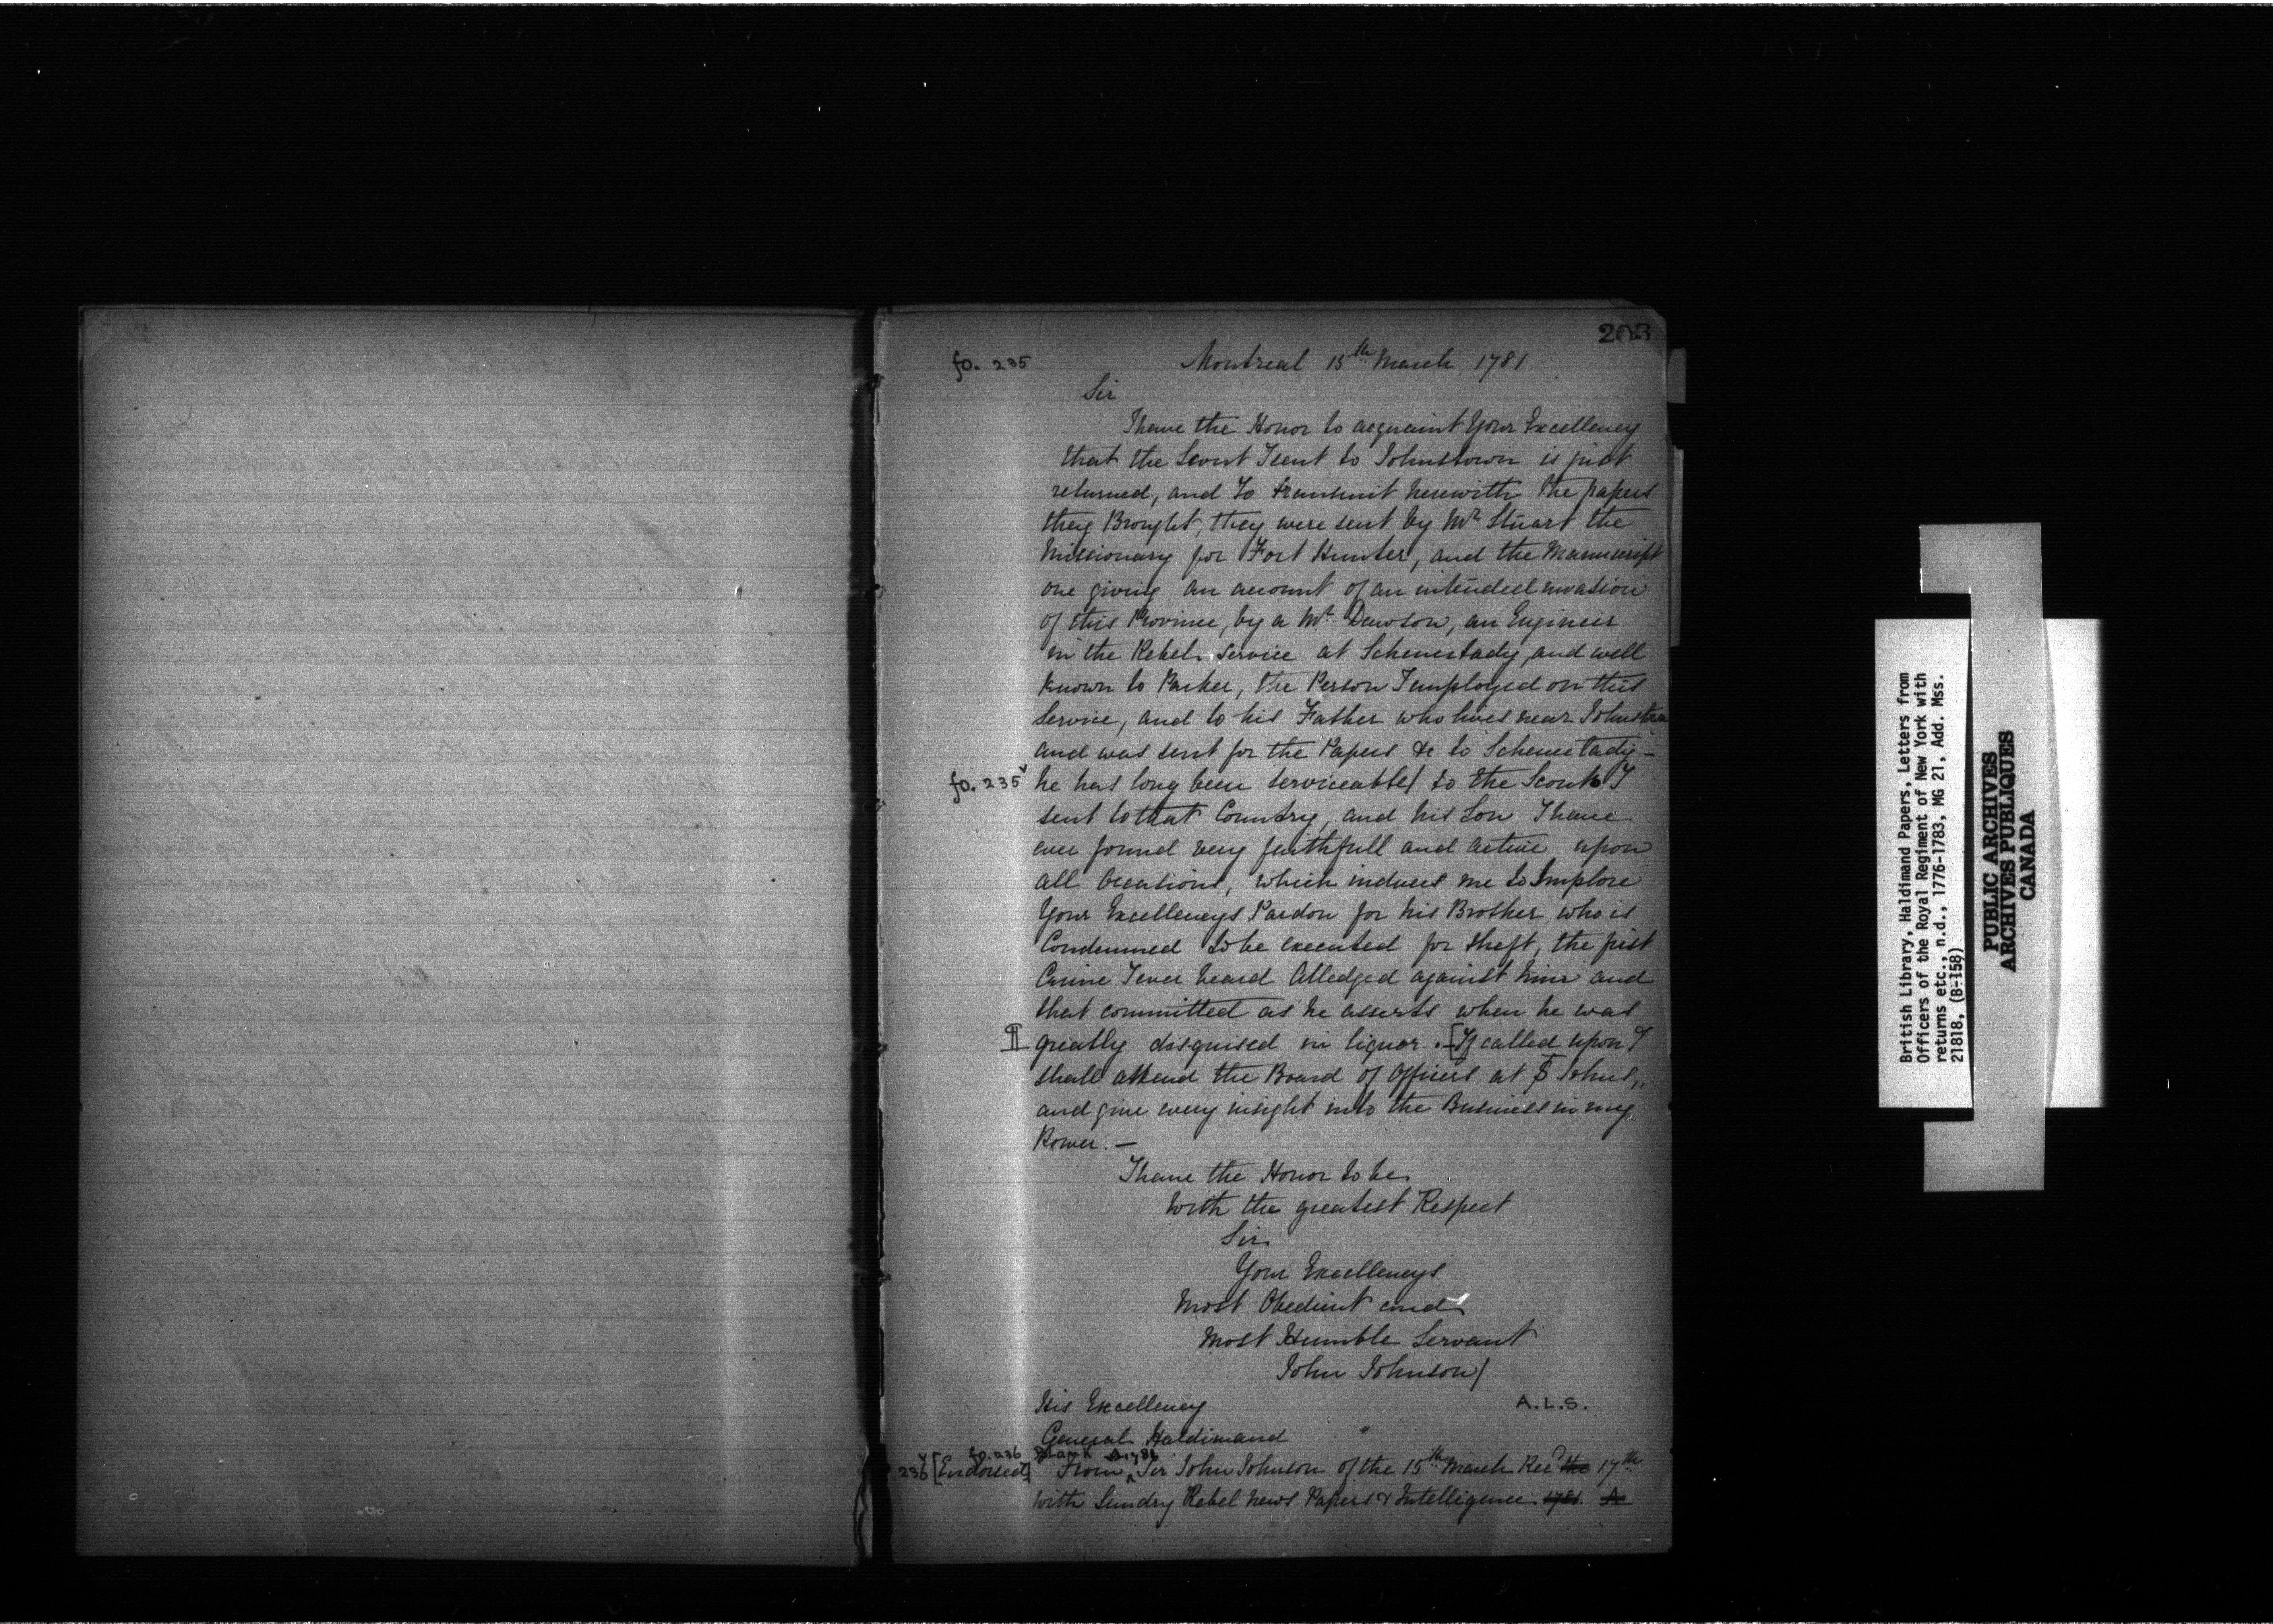 203
fo. 235
Montreal 15th March 1781
Sir
I have the Honor to acquaint Your Excellency
that the Scout I sent to Johnstown is just
returned, and to transmit herewith the papers
they Brought, they were sent by Mr Stuart the
Missionary for Fort Hunter, and the Manuscript
one giving an account of an intended invasion
of this Province, by a Mr Dawson, an Engineer
in the Rebel Service at Schenectady, and well
known to Parker, the Person I employed on this
Service, and to his Father who lives near Johnstown
and was sent for the Papers &c to Schenectady –
fo. 235v
he has long been serviceable/ to the Scouts I
sent to that Country, and his Son I have
ever found very faithfull and active upon
all Occasions, which induces me to Implore
Your Excellencys Pardon for his Brother, who is
Condemned to be executed for theft, the first
Crime I ever heard Alledged against him and
that committed as he asserts when he was
¶ greatly disguised in liquor. – [If called upon I
shall attend the Board of Officers at St Johns,
and give every insight into the Business in my
Power. —
I have the Honor to be
With the greatest Respect
Sir
Your Excellencys
Most Obedient and
Most Humble Servant
John Johnson/
His Excellency
A.L.S.
General Haldimand
fo. 236 Blank A 1781
236v [Endorsed] From Sir John Johnson of the 15th March Recd the 17th
With Sundry Rebel News Papers & Intelligence. 1781. A
British Library, Haldimand Papers, Letters from
Officers of the Royal Regiment of New York with
returns etc., n.d., 1776-1783, MG 21, Add. Mss.
21818, (B-158)
PUBLIC ARCHIVES
ARCHIVES PUBLIQUES
CANADA